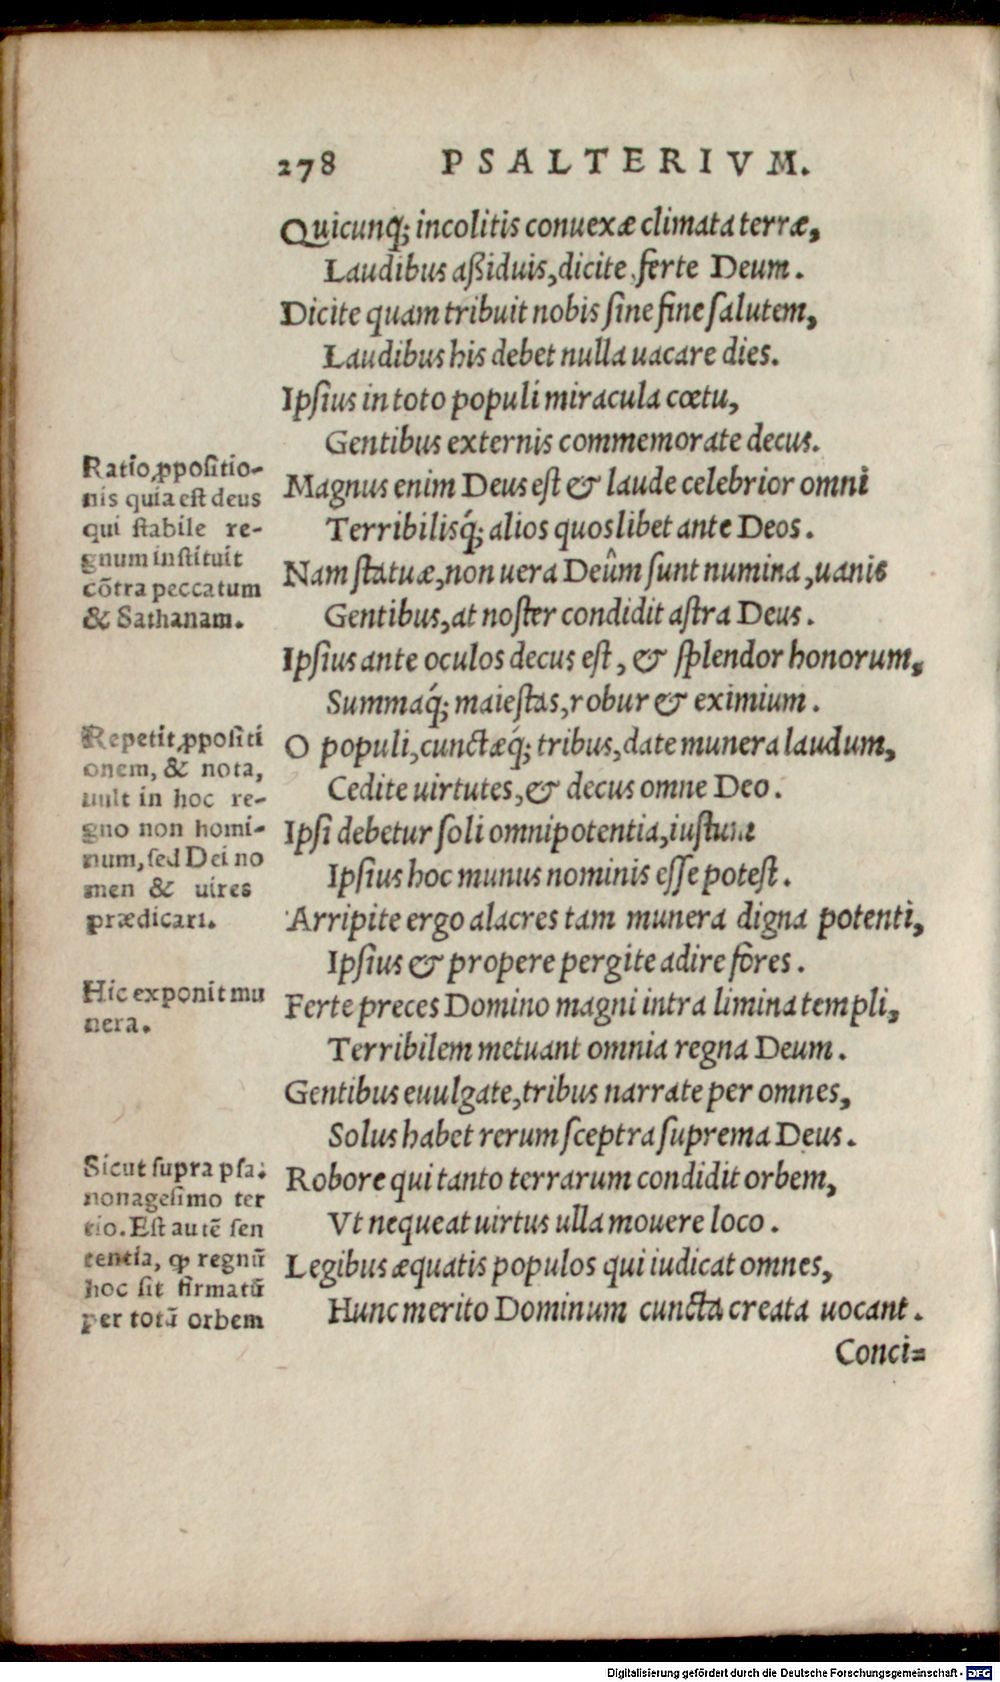 278 PSALTERIVM.
Quicunq; incolitis conuexæ climata terræ,
Laudibus aßiduis, dicite, ferte Deum.
Dicite quam tribuit nobis ſine fine ſalutem,
Laudibus his debet nulla uacare dies.
Ipſius in toto populi miracula cœtu,
Gentibus externis commemorate decus.
Magnus enim Deus eſt & laude celebrior omni
Terribilisq́; alios quoslibet ante Deos.
Nam ſtatuæ, non uera Deûm ſunt numina, uanis
Gentibus, at noſter condidit aſtra Deus.
Ipſius ante oculos decus eſt, & ſplendor honorum,
Summaq́; maieſtas, robur & eximium.
O populi, cunctæq́; tribus, date munera laudum,
Cedite uirtutes, & decus omne Deo.
Ipſi debetur ſoli omnipotentia, iuſtum
Ipſius hoc munus nominis eſſe poteſt.
Arripite ergo alacres tam munera digna potenti,
Ipſius & propere pergite adire fores.
Ferte preces Domino magni intra limina templi,
Terribilem metuant omnia regna Deum.
Gentibus euulgate, tribus narrate per omnes,
Solus habet rerum ſceptra ſuprema Deus.
Robore qui tanto terrarum condidit orbem,
Vt nequeat uirtus ulla mouere loco.
Legibus æquatis populos qui iudicat omnes,
Hunc merito Dominum cuncta creata uocant.
Conci-
Ratio ꝓpoſitio-
nis quia eſt deus
qui ſtabile re-
gnum inſtituit
cõtra peccatum
& Sathanam.
Repetit ꝓpoſiti
onem, & nota,
uult in hoc re-
gno non homi-
num, ſed Dei no
men & uires
prædicari.
Hic exponit mu
nera.
Sicut ſupra pſa.
nonageſimo ter
tio. Eſt autẽ ſen
tentia, ꝙ regnũ
hoc ſit firmatũ
per totã orbem
Digitalisierung gefördert durch die Deutsche Forschungsgemeinschaft - DFG